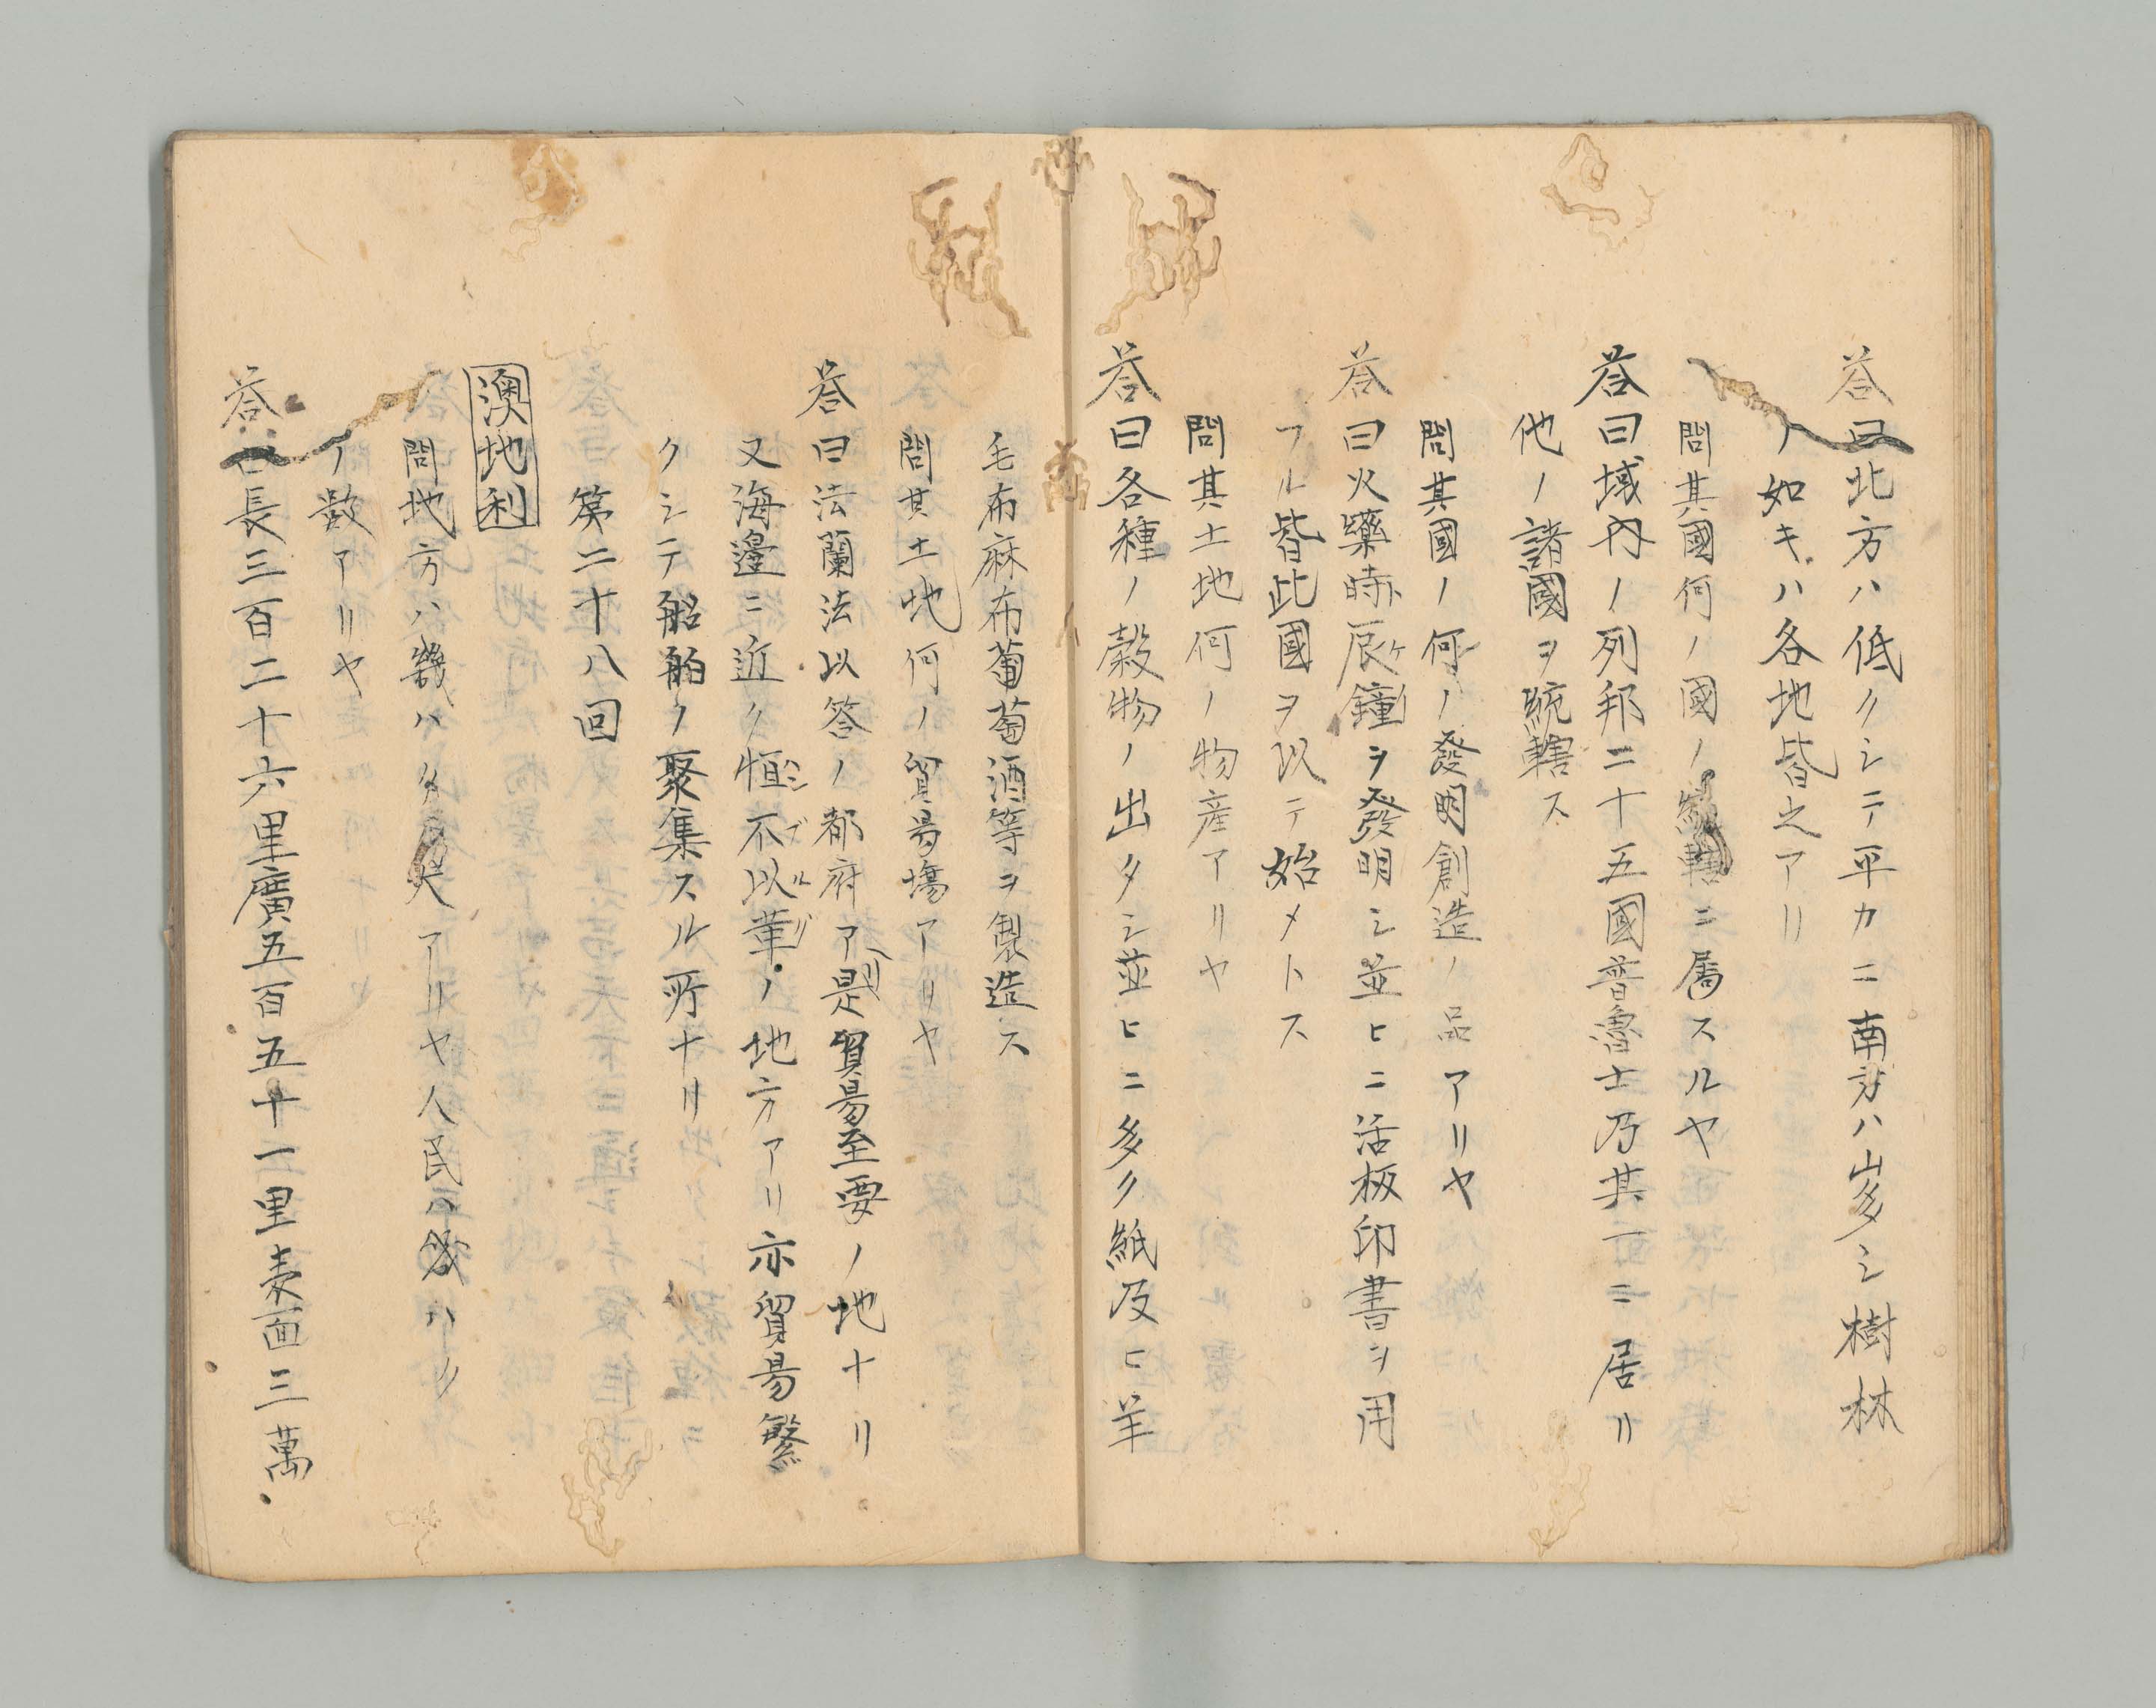 答曰北方ハ低クシテ平カニ南方ハ山多シ樹林
ノ如キハ各地皆之アリ
問其國何ノ國ノ統轄ニ屬スルヤ
答曰域内ノ列邦二十五國普魯士乃其一ニ居リ
他ノ諸國ヲ統轄ス
問其國ノ何ノ發明創造ノ品アリヤ
答曰火藥時辰鐘ヲ發明シ並ヒニ活板印書ヲ用
フル皆此國ヲ以テ始メトス
問其土地何ノ物産アリヤ
答曰各種ノ穀物ノ出タシ並ヒニ多ク紙及ヒ羊
毛布麻布葡萄酒等ヲ製造ス
問其土地何ノ貿昜塲アリヤ
答曰法蘭法以答ノ都府アリ是貿昜至要ノ地ナリ
又海邉ニ近ク恒不以革ノ地方アリ亦貿昜繁
クシテ船舶ノ聚集スル所ナリ
第二十八回
澳地利
問地方ハ幾ハク大アリヤ人民ハ幾ハク
ノ數アリヤ
答曰長三百二十六里廣五百五十一里表面三萬